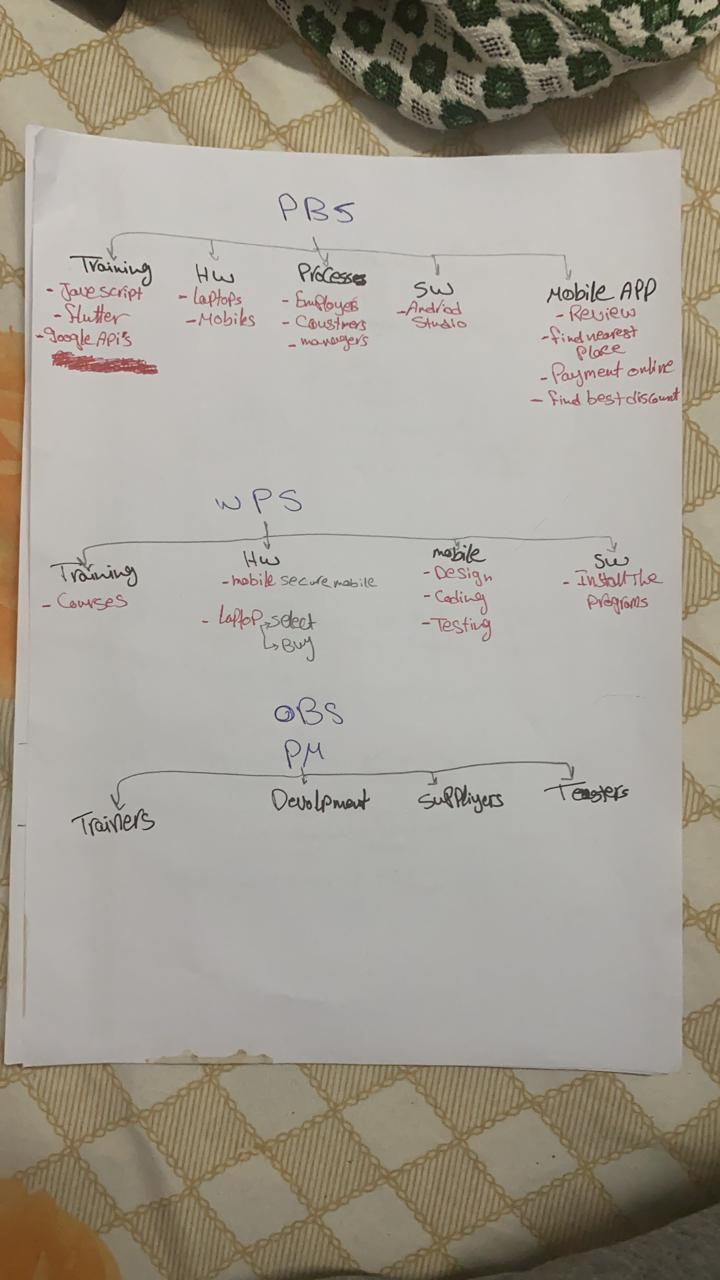 PBS
Training
- Javescript
- Flutter
- google API's
HW
- Laptops
- Mobiles
Processes
- Employes
- Coustmers
- manegers
SW
- Andriod
Studio
Mobile APP
- Review
- find nearest
Place
- Payment online
- find best discount
WPS
Training
- Courses
HW
- mobile secure mobile
- Laptop → select
↳ Buy
mobile
- Design
- Coding
- Testing
SW
- Install The
programs
OBS
PM
Trainers
Devolpment
Suppliyers
Testers